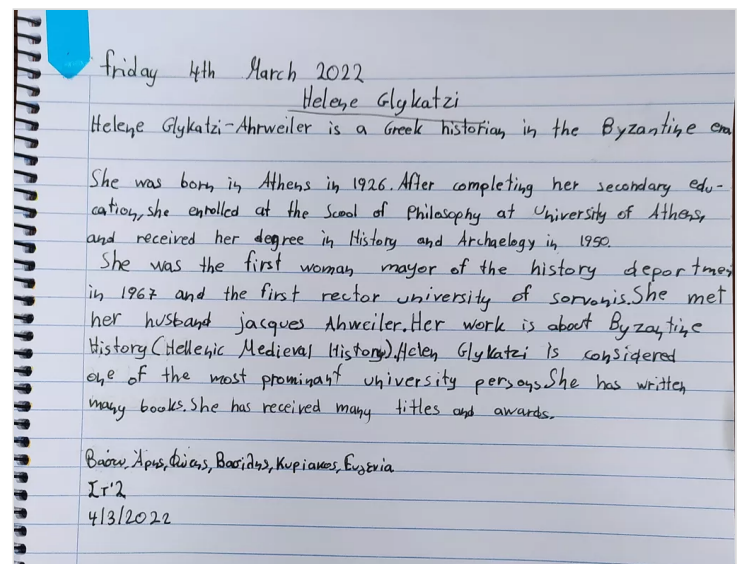 friday 4th March 2022
Helene Glykatzi
Helene Glykatzi-Ahrweiler is a Greek historian in the Byzantine era
She was born in Athens in 1926. After completing her secondary edu-
cation, she enrolled at the Scool of Philosophy at University of Athens,
and received her degree in History and Archaelogy in 1950.
She was the first woman mayor of the history deportmen
in 1967 and the first rector university of sorvonis. She met
her husband jacques Ahweiler. Her work is about Byzantine
History (Hellenic Medieval History). Helen Glykatzi is considered
one of the most prominant university persons. She has written
many books. She has received many titles and awards.
Άρης, Βασίλης, Κυριακος, Ευγενία
Στ'2
4/3/2022